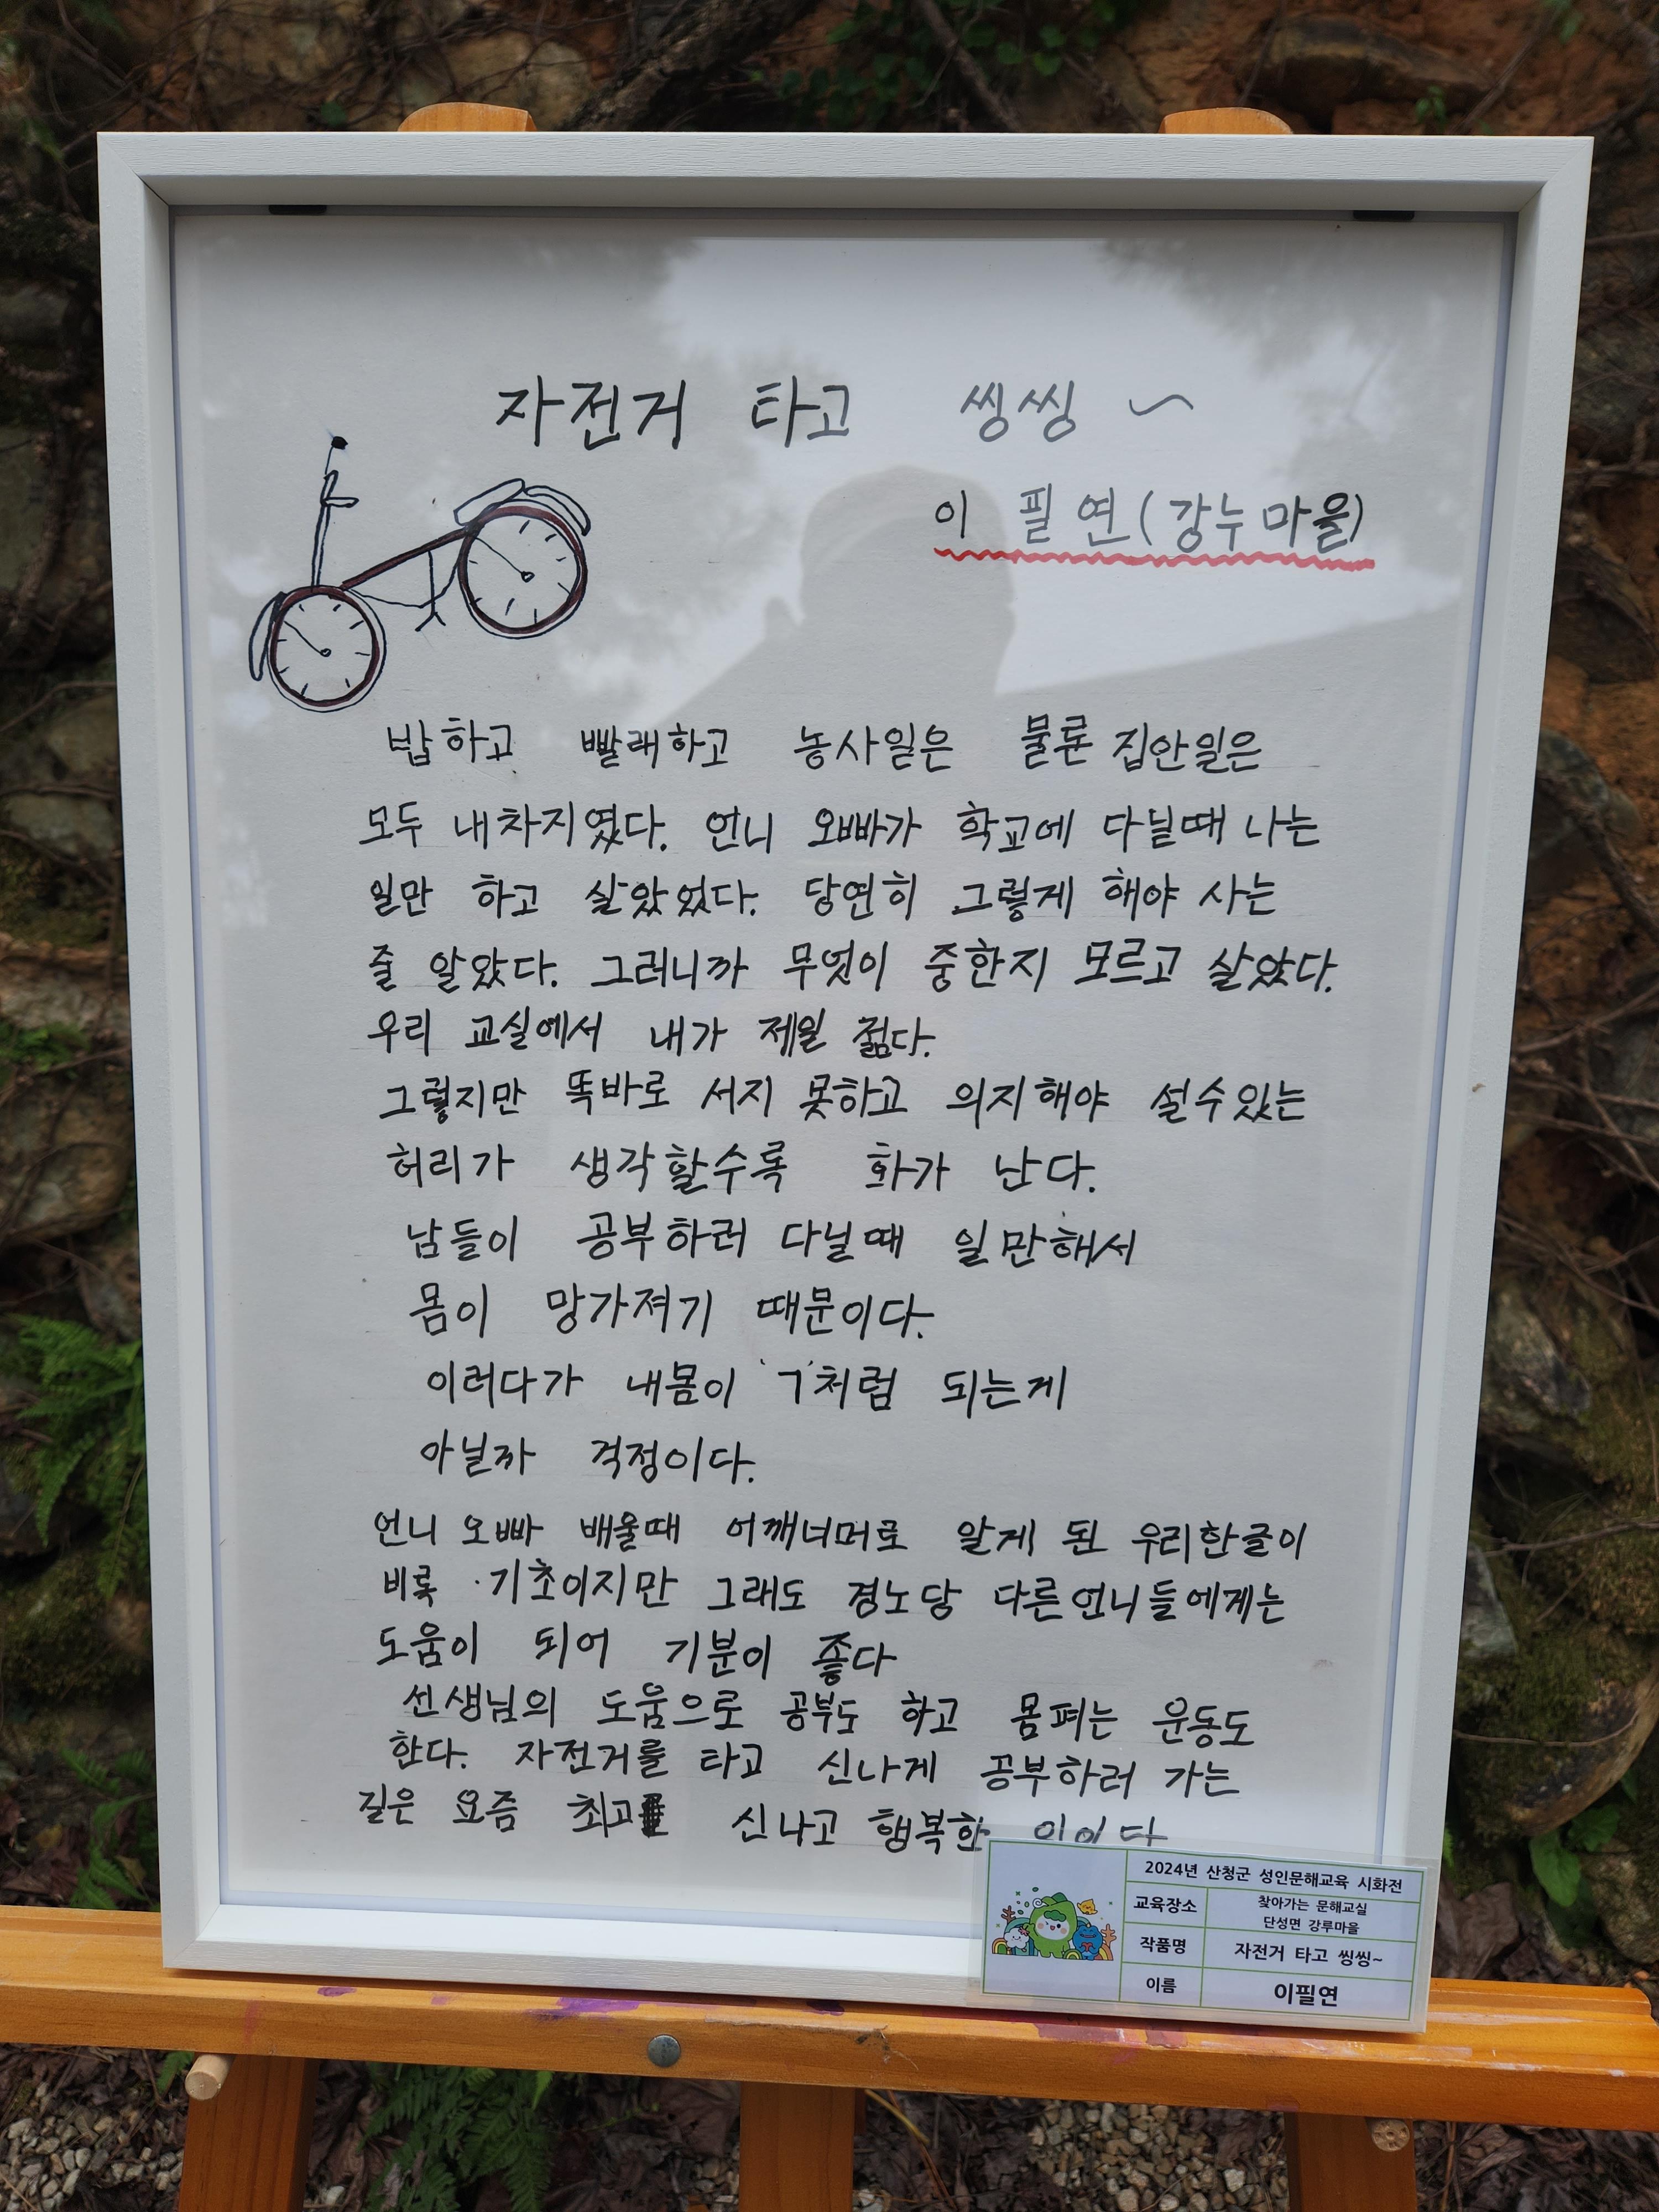 자전거 타고 씽씽~
이 필연(강누마을)
밥하고 빨래하고 농사일은 물론 집안일은
모두 내차지였다. 언니 오빠가 학교에 다닐때 나는
일만 하고 살았었다. 당연히 그렇게 해야 사는
줄 알았다. 그러니까 무엇이 중한지 모르고 살았다.
우리 교실에서 내가 제일 젊다.
그렇지만 똑바로 서지 못하고 의지해야 설수있는
허리가 생각할수록 화가 난다.
남들이 공부하러 다닐때 일만해서
몸이 망가져기 때문이다.
이러다가 내몸이 'ㄱ'처럼 되는게
아닐까 걱정이다.
언니 오빠 배울때 어깨너머로 알게 된 우리한글이
비록 기초이지만 그래도 경노당 다른언니들에게는
도움이 되어 기분이 좋다
선생님의 도움으로 공부도 하고 몸펴는 운동도
한다. 자전거를 타고 신나게 공부하러 가는
길은 요즘 최고 신나고 행복한
2024년 산청군 성인문해교육 시화전
교육장소 찾아가는 문해교실
단성면 강루마을
작품명 자전거 타고 씽씽~
이름 이필연